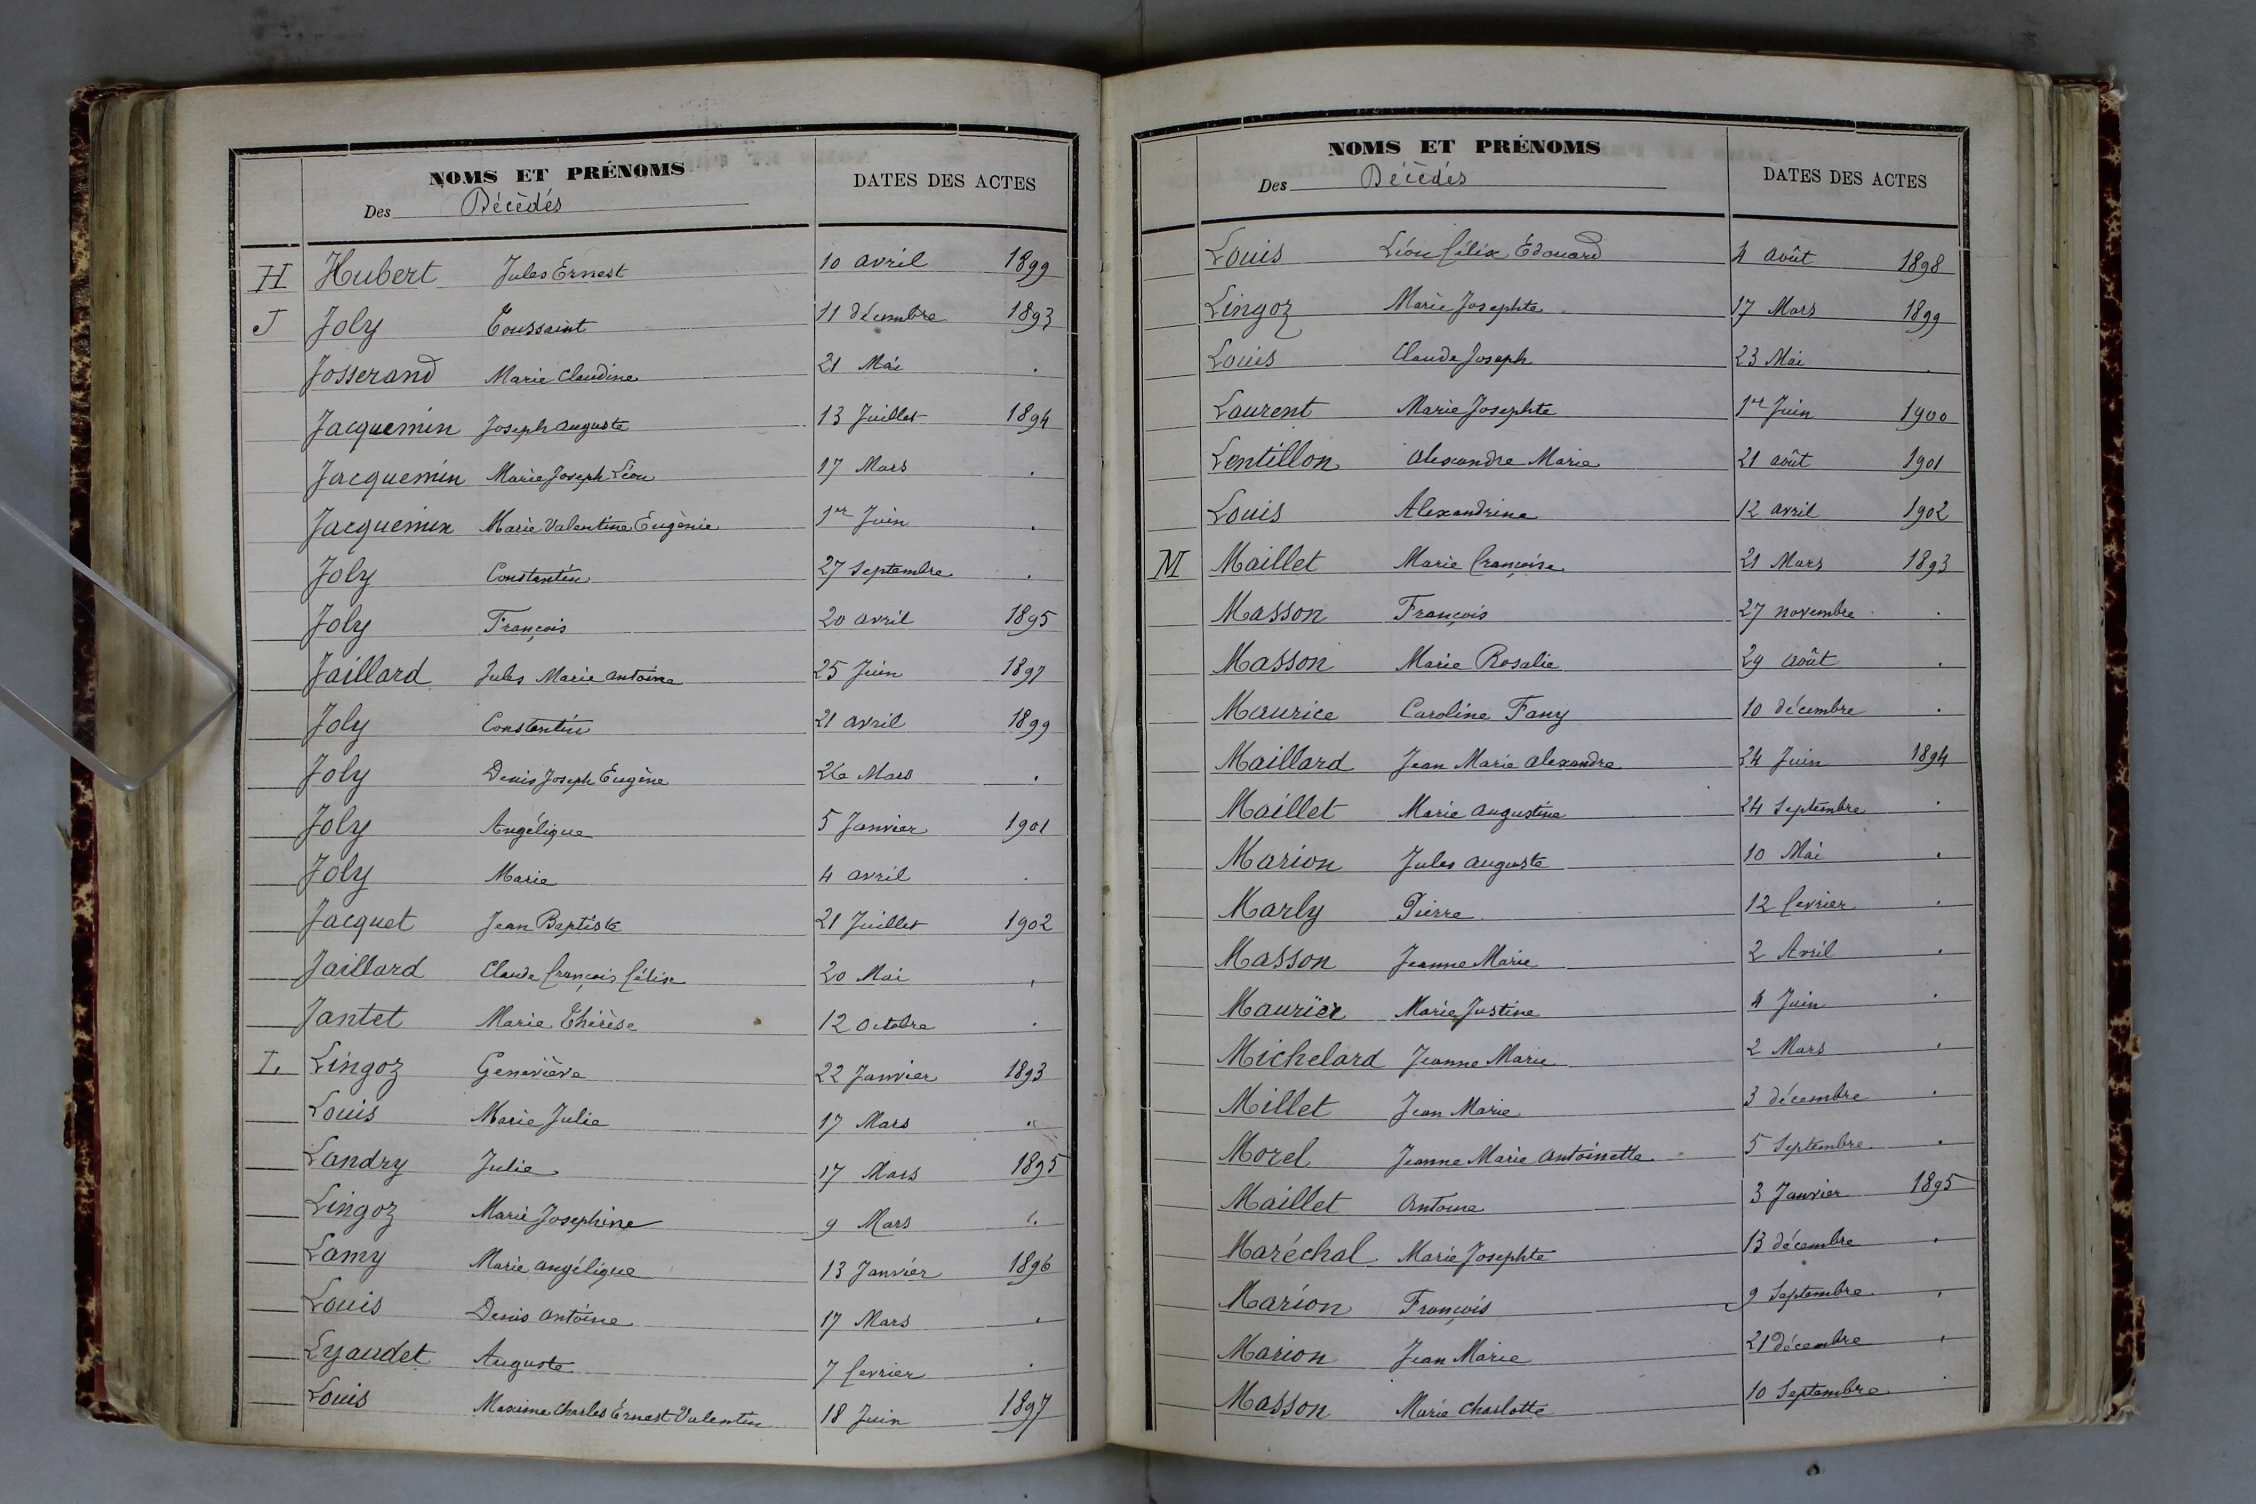 NOMS ET PRÉNOMS
DATES DES ACTES
Des Décèdés
H Hubert Jules Ernest 10 avril 1899
J Joly Toussaint 11 décembre 1893
Josserand Marie Claudine 21 Mai .
Jacquemin Joseph auguste 13 Juillet 1894
Jacquemin Marie Joseph Léon 17 Mars .
Jacquemin Marie Valentine Eugènie 1er Juin .
Joly Constantin 27 Septembre .
Joly François 20 avril 1895
Jaillard Jules Marie antoine 25 Juin 1897
Joly Constantin 21 avril 1899
Joly Denis Joseph Eugène 26 Mars .
Joly Angélique 5 Janvier 1901
Joly Marie 4 avril .
Jacquet Jean Baptiste 21 Juillet 1902
Jaillard Claude François Félix 20 Mai .
Jantet Marie Thérèse 12 Octobre .
L. Lingoz Geneviève 22 Janvier 1893
Louis Marie Julie 17 Mars "
Landry Julie 17 Mars 1895
Lingoz Marie Josephine 9 Mars "
Lamy Marie angélique 13 Janvier 1896
Louis Denis antoine 17 Mars .
Lyaudet Auguste 7 fevrier .
Louis Maxime Charles Ernest Valentin 18 Juin 1897
NOMS ET PRÉNOMS
DATES DES ACTES
Des Décèdés
Louis Léon Félix Edouard 4 août 1898
Lingoz Marie Josephte 17 Mars 1899
Louis Claude Joseph 23 Mai .
Laurent Marie Josephte 1er Juin 1900
Lentillon alexandre Marie 21 août 1901
Louis Alexandrine 12 avril 1902
M Maillet Marie Françoise 21 Mars 1893
Masson François 27 novembre .
Masson Marie Rosalie 29 août .
Maurice Caroline Fany 10 décembre .
Maillard Jean Marie alexandre 24 Juin 1894
Maillet Marie augustine 24 Septembre .
Marion Jules auguste 10 Mai .
Marly Pierre 12 fevrier .
Masson Jeanne Marie 2 Avril .
Maurier Marie Justine 4 Juin .
Michelard Jeanne Marie 2 Mars .
Millet Jean Marie 3 décembre .
Morel Jeanne Marie antoinette 5 Septembre .
Maillet antoine 3 Janvier 1895
Maréchal Marie Josephte 13 décembre .
Marion François 9 Septembre .
Marion Jean Marie 21 décembre .
Masson Marie Charlotte 10 Septembre .